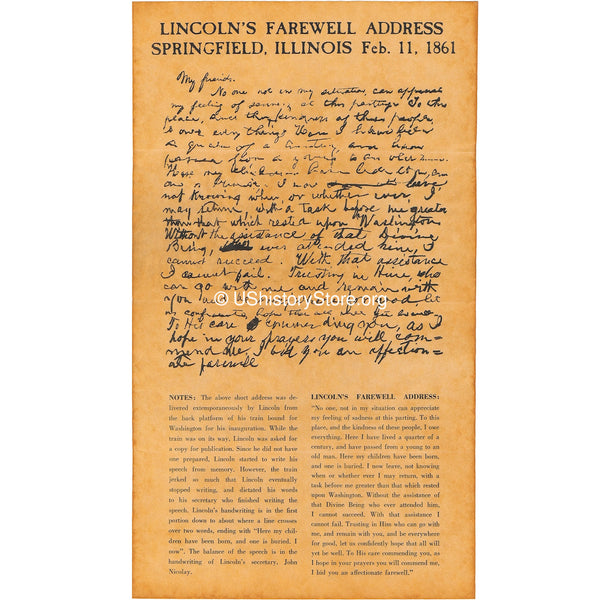 LINCOLN'S FAREWELL ADDRESS
SPRINGFIELD, ILLINOIS Feb. 11, 1861
My friends.
No one not in my situation, can appreciate
my feeling of sadness at this parting. To this
place, and the kindness of these people,
I owe every thing. Here I have lived
a quarter of a century, and have
passed from a young to an old man.
Here my children have been born, and
one is buried. I now leave,
not knowing when, or whether ever, I
may return, with a task before me greater
than that which rested upon Washington.
Without the assistance of that Divine
Being, ever attended him, I
cannot succeed. With that assistance
I cannot fail. Trusting in Him, who
can go with me, and remain with
you and be every where for good, let
us confidently hope that all will yet be well
To His care commending you, as I
hope in your prayers you will com=
mend me, I bid you an affection=
ate farewell
© UShistoryStore.org
NOTES: The above short address was de-
livered extemporaneously by Lincoln from
the back platform of his train bound for
Washington for his inauguration. While the
train was on its way, Lincoln was asked for
a copy for publication. Since he did not have
one prepared, Lincoln started to write his
speech from memory. However, the train
jerked so much that Lincoln eventually
stopped writing, and dictated his words
to his secretary who finished writing the
speech. Lincoln's handwriting is in the first
portion down to about where a line crosses
over two words, ending with "Here my chil-
dren have been born, and one is buried. I
now". The balance of the speech is in the
handwriting of Lincoln's secretary, John
Nicolay.
LINCOLN'S FAREWELL ADDRESS:
"No one, not in my situation can appreciate
my feeling of sadness at this parting. To this
place, and the kindness of these people, I owe
everything. Here I have lived a quarter of a
century, and have passed from a young to an
old man. Here my children have been born,
and one is buried. I now leave, not knowing
when or whether ever I may return, with a
task before me greater than that which rested
upon Washington. Without the assistance of
that Divine Being who ever attended him,
I cannot succeed. With that assistance I
cannot fail. Trusting in Him who can go with
me, and remain with you, and be everywhere
for good, let us confidently hope that all will
yet be well. To His care commending you, as
I hope in your prayers you will commend me,
I bid you an affectionate farewell."